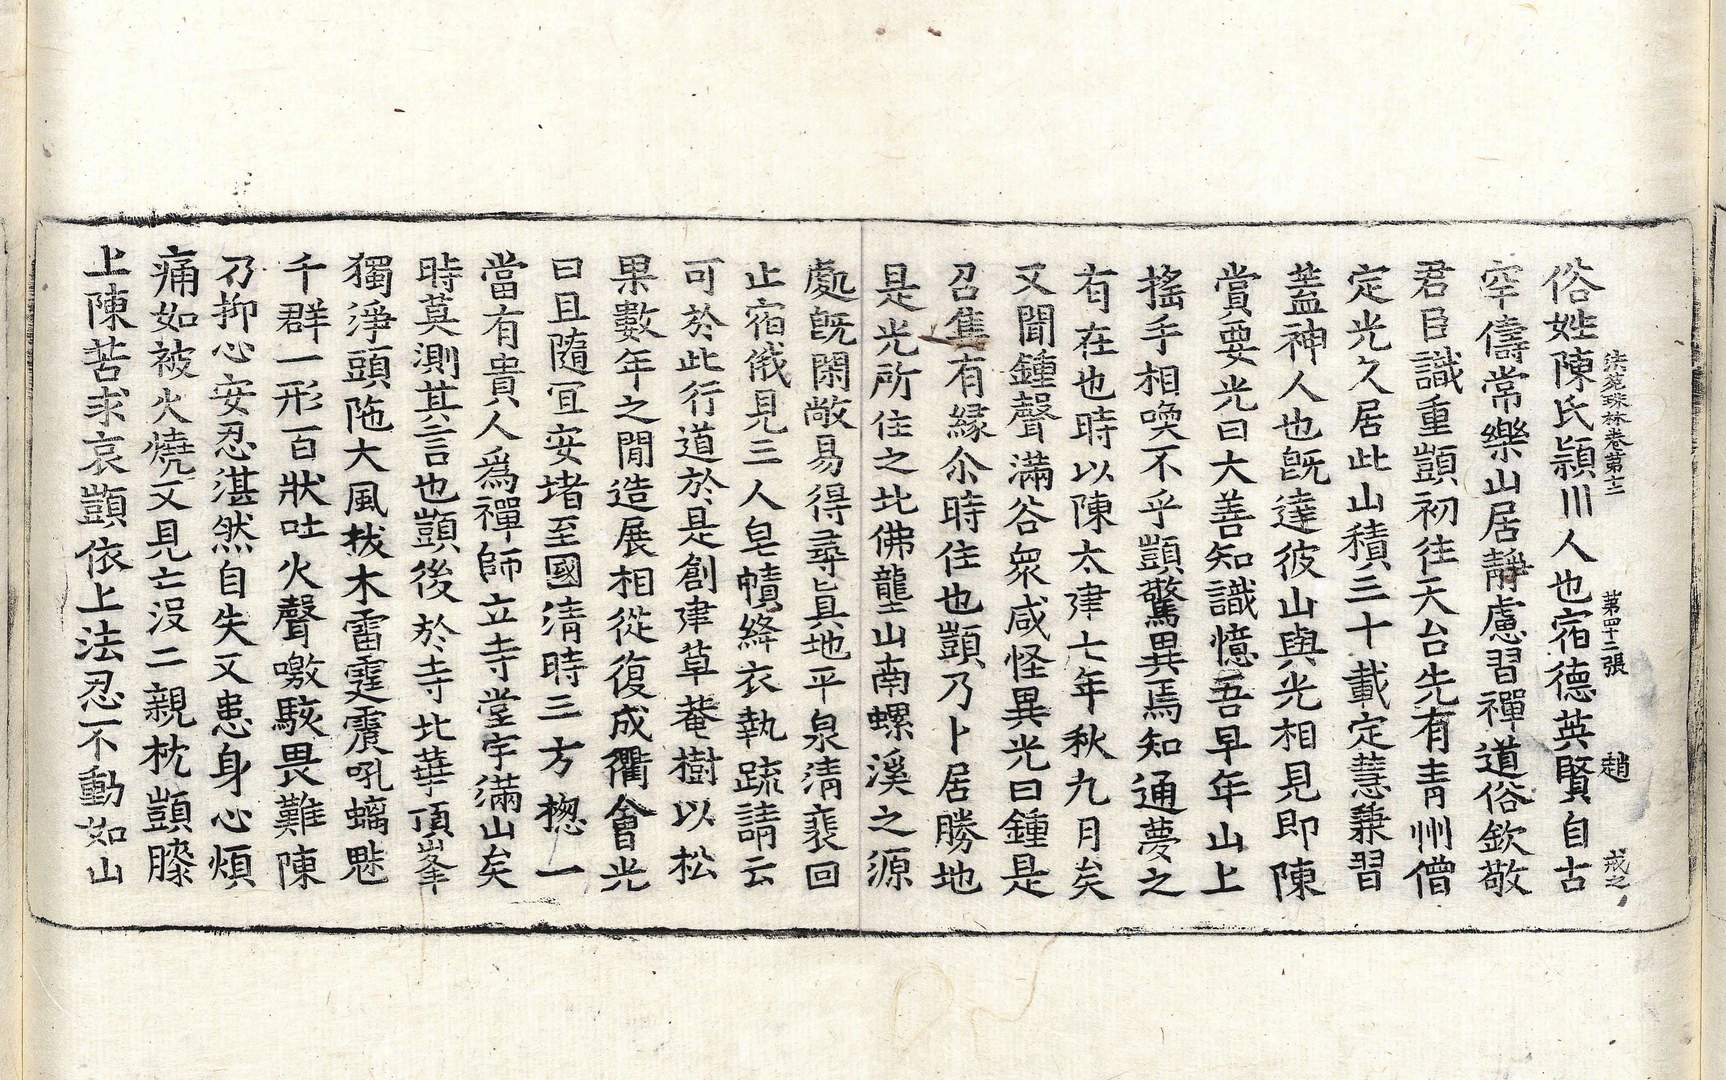 法苑珠林卷第十二 第四十二張 趙 戒之
俗姓陳氏潁川人也宿德英賢自古
罕儔常樂山居靜慮習禪道俗欽敬
君臣識重顗初往天台先有青州僧
定光久居此山積三十載定慧兼習
蓋神人也旣達彼山與光相見即陳
賞要光曰大善知識憶吾早年山上
搖手相喚不乎顗驚異焉知通夢之
有在也時以陳太建七年秋九月矣
又聞鍾聲滿谷衆咸怪異光曰鍾是
召集有緣尒時住也顗乃卜居勝地
是光所住之北佛壟山南螺溪之源
處旣閑敞易得尋眞地平泉清裵回
止宿俄見三人皂幘絳衣執䟽請云
可於此行道於是創建草菴樹以松
果數年之閒造展相從復成衢會光
曰且隨宜安堵至國清時三方揔一
當有貴人爲禪師立寺堂宇滿山矣
時莫測其言也顗後於寺北華頂峯
獨淨頭陁大風拔木雷霆震吼螭魅
千群一形百狀吐火聲噭駭畏難陳
乃抑心安忍湛然自失又患身心煩
痛如被火燒又見亡沒二親枕顗膝
上陳苦求哀顗依止法忍不動如山